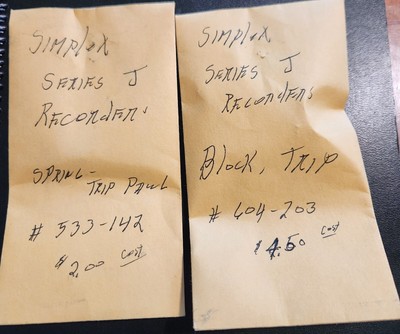 Simplex
Series J
Recorders
Spring -
Trip Pawl
# 533-142
$2.00 cost
Simplex
Series J
Recorders
Block, Trip
# 604-203
$4.50 cost